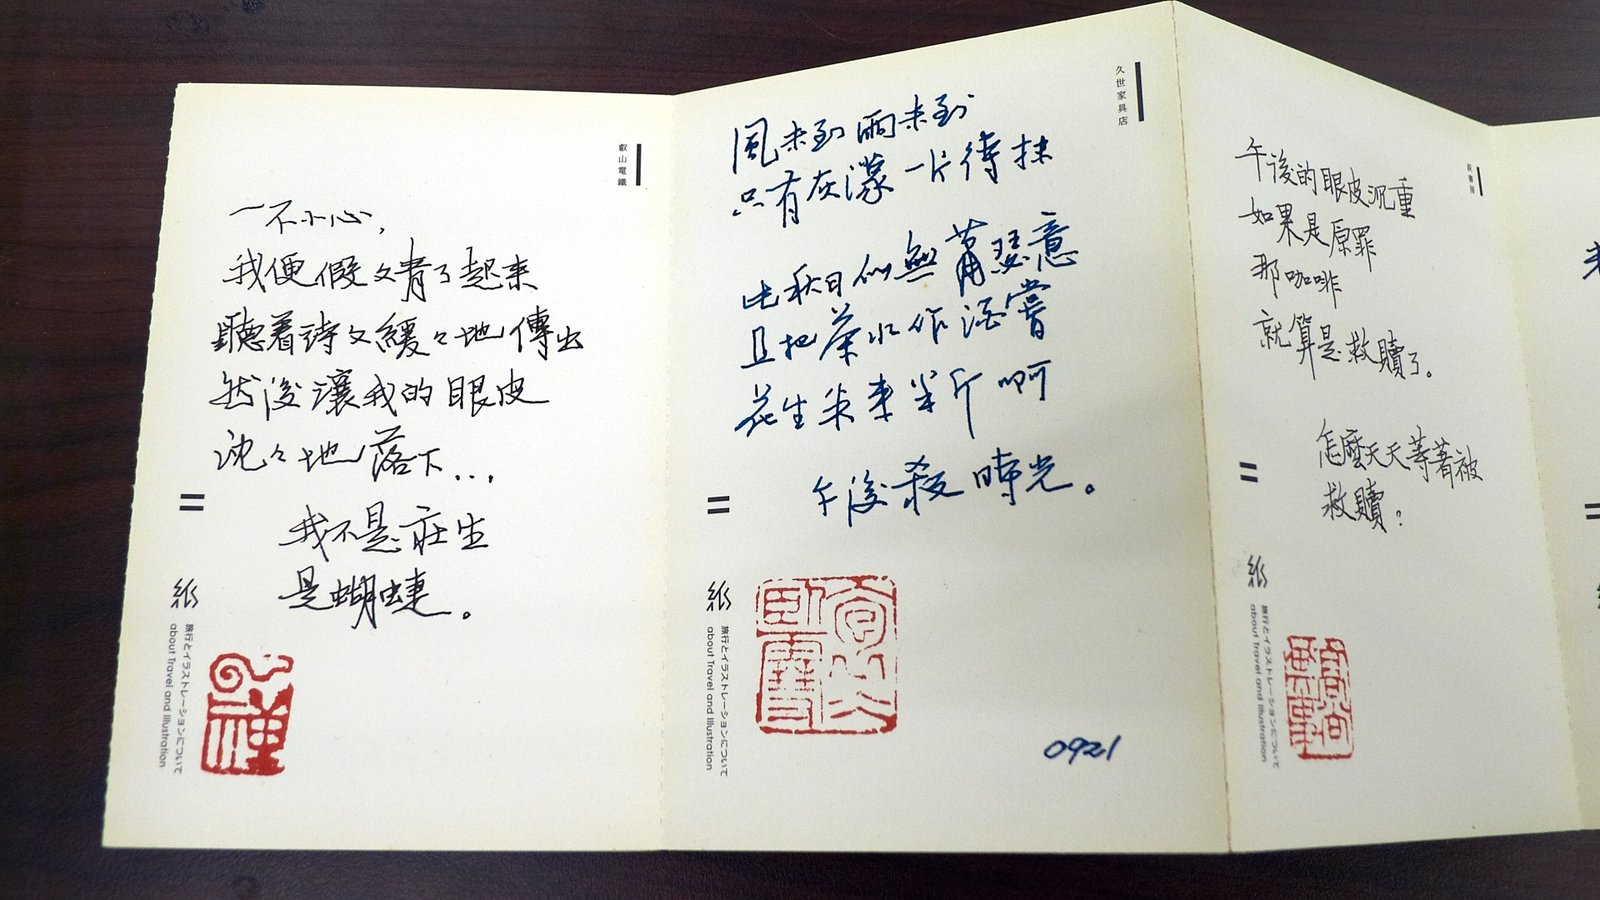 叡山電鐵
一不小心,
我便假文青了起來
聽着詩文緩々地傳出
然後讓我的眼皮
沈々地落下...
我不是莊生
是蝴蝶。
紙
旅行とイラストレーションについて
about Travel and Illustration
久世家具店
風未到雨未到
只有灰濛一片待抹
此秋日似無蕭瑟意
且把茶水作酒嘗
花生米來半斤啊
午後殺時光。
紙
旅行とイラストレーションについて
about Travel and Illustration
0921
午後的眼皮沉重
如果是原罪
那咖啡
就算是救贖了。
怎麼天天等著被
救贖?
紙
旅行とイラストレーションについて
about Travel and Illustration